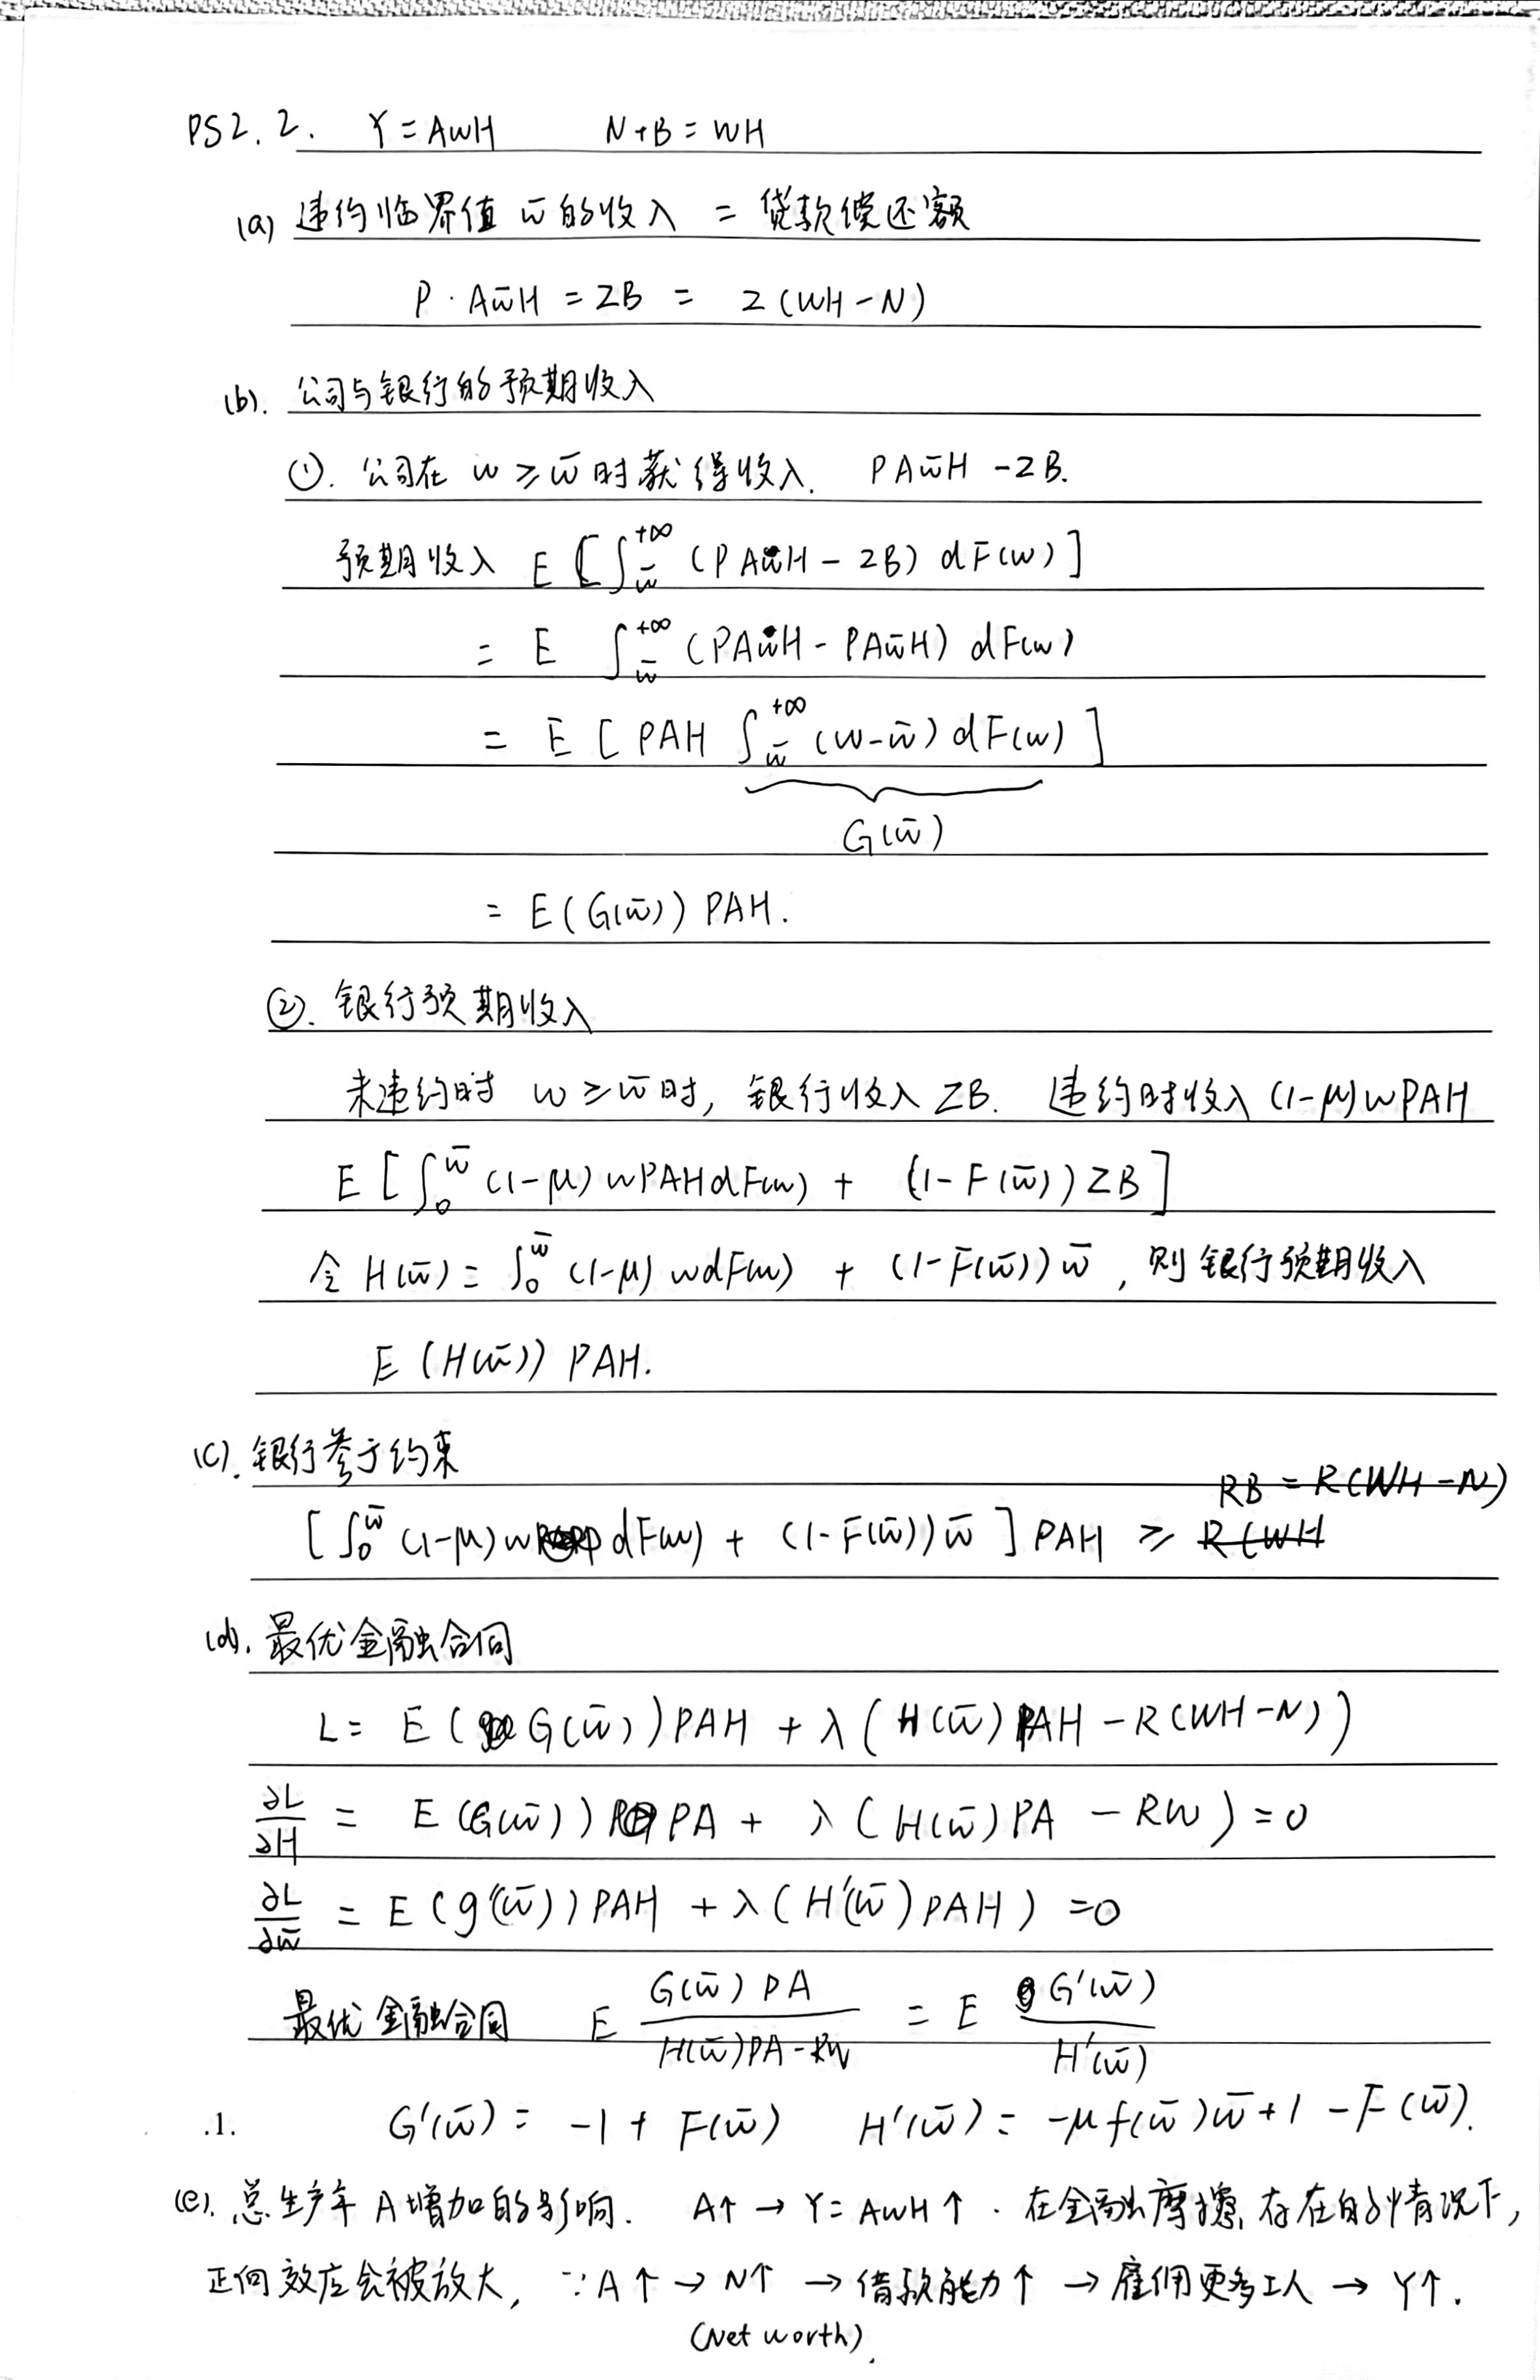 PS2.2. Y=AwH N+B=WH
(a) 违约临界值 w̄ 的收入 = 贷款偿还额
P·Aw̄H = ZB = Z(WH-N)
(b). 公司与银行的预期收入
①. 公司在 w ≥ w̄ 时获得收入. PAw̄H -ZB.
预期收入 E [∫_w̄^{+∞} (PAwH - ZB) dF(w)]
= E ∫_w̄^{+∞} (PAwH - PAw̄H) dF(w)
= E [PAH ∫_w̄^{+∞} (w-w̄) dF(w)]
G(w̄)
= E(G(w̄)) PAH.
②. 银行预期收入
未违约时 w ≥ w̄ 时, 银行收入 ZB. 违约时收入 (1-μ)wPAH
E [∫_0^w̄ (1-μ) wPAHdF(w) + (1-F(w̄))ZB]
令 H(w̄) = ∫_0^w̄ (1-μ) wdF(w) + (1-F(w̄))w̄, 则银行预期收入
E (H(w̄)) PAH.
(c). 银行参于约束
RB = R(WH-N)
[∫_0^w̄ (1-μ)w dF(w) + (1-F(w̄))w̄] PAH ≥ R(WH
(d). 最优金融合同
L = E(G(w̄))PAH + λ(H(w̄)PAH - R(WH-N))
∂L/∂H = E(G(w̄)) PA + λ(H(w̄)PA - RW) = 0
∂L/∂w̄ = E(g'(w̄))PAH + λ(H'(w̄)PAH) = 0
最优金融合同 E G(w̄)PA / H(w̄)PA-RW = E G'(w̄) / H'(w̄)
.1. G'(w̄) = -1 + F(w̄) H'(w̄) = -μf(w̄)w̄+1-F(w̄).
(e). 总生产率 A增加的影响. A↑ → Y=AwH↑. 在金融摩擦存在的情况下,
正向效应会被放大, ∵A↑ → N↑ → 借款能力↑ → 雇佣更多工人 → Y↑.
(Net worth).